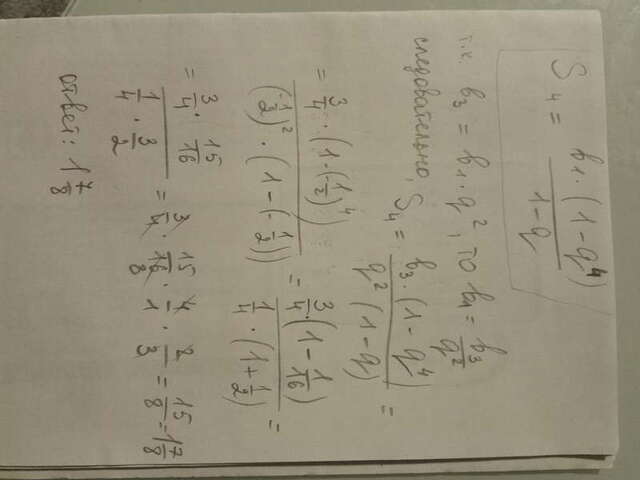 S₄ = b₁·(1-q⁴)/(1-q)
т.к. b₃ = b₁·q², то b₁ = b₃/q²
следовательно, S₄ = b₃·(1-q⁴)/(q²(1-q)) =
= 3/4·(1·(-1/2)⁴)/((-1/2)²·(1-(-1/2))) = 3/4·(1-1/16)/(1/4·(1+1/2)) =
= (3/4·15/16)/(1/4·3/2) = 3/4·15/16·4/1·2/3 = 15/8 = 1 7/8
ответ: 1 7/8